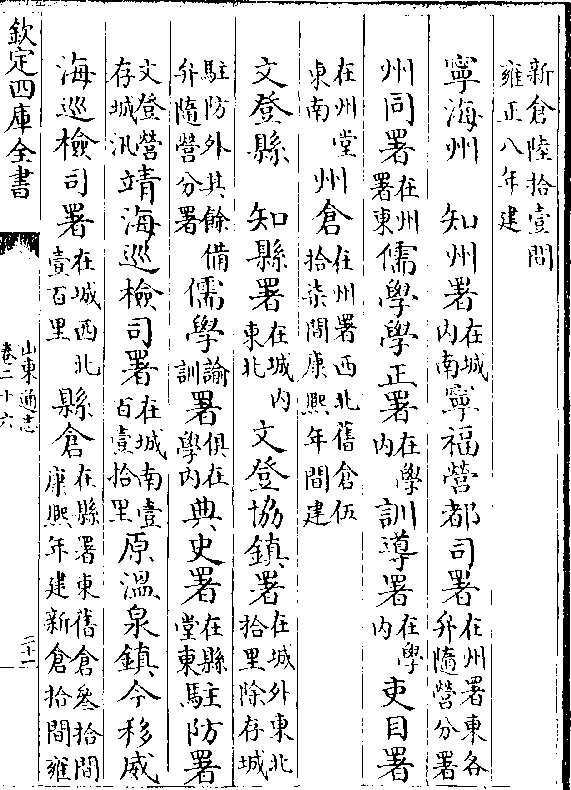 新倉陸拾壹間雍正八年建
寧海州　知州署在城内南寧福營都司署在州署東各弁隨營分署
州同署在州署東儒學學正署在學内訓導署在學内吏目署
在州堂東南州倉在州署西北舊倉伍拾柒間康熙年間建
文登縣　知縣署在城内東北文登協鎮署在城外東北拾里除存城
駐防外其餘備弁隨營分署儒學諭訓署俱在學内典史署在縣堂東駐防署
文登營存城汛靖海巡檢司署在城南壹百壹拾里原溫泉鎮今移威
海巡檢司署在城西北壹百里縣倉在縣署東舊倉叄拾間康熙年建新倉拾間雍
欽定四庫全書
山東通志
卷二十六
二十一